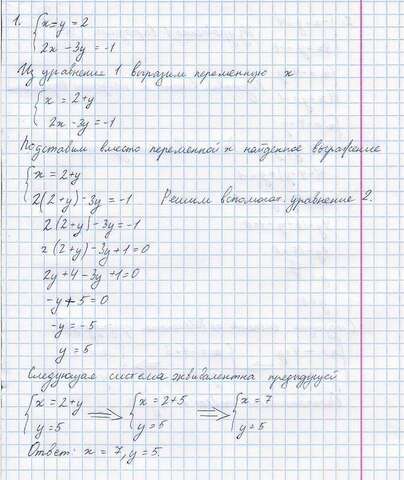 1. { x - y = 2
2x - 3y = -1
Из уравнения 1 выразим переменную x
{ x = 2+y
2x - 3y = -1
Подставим вместо переменной x найденное выражение
{ x = 2+y
2(2+y) - 3y = -1 Решим вспомогат. уравнение 2.
2(2+y) - 3y = -1
2(2+y) - 3y + 1 = 0
2y + 4 - 3y + 1 = 0
-y + 5 = 0
-y = -5
y = 5
Следующая система эквивалентна предыдущей
{ x = 2+y ⟹ { x = 2+5 ⟹ { x = 7
y = 5 y = 5 y = 5
Ответ: x = 7, y = 5.